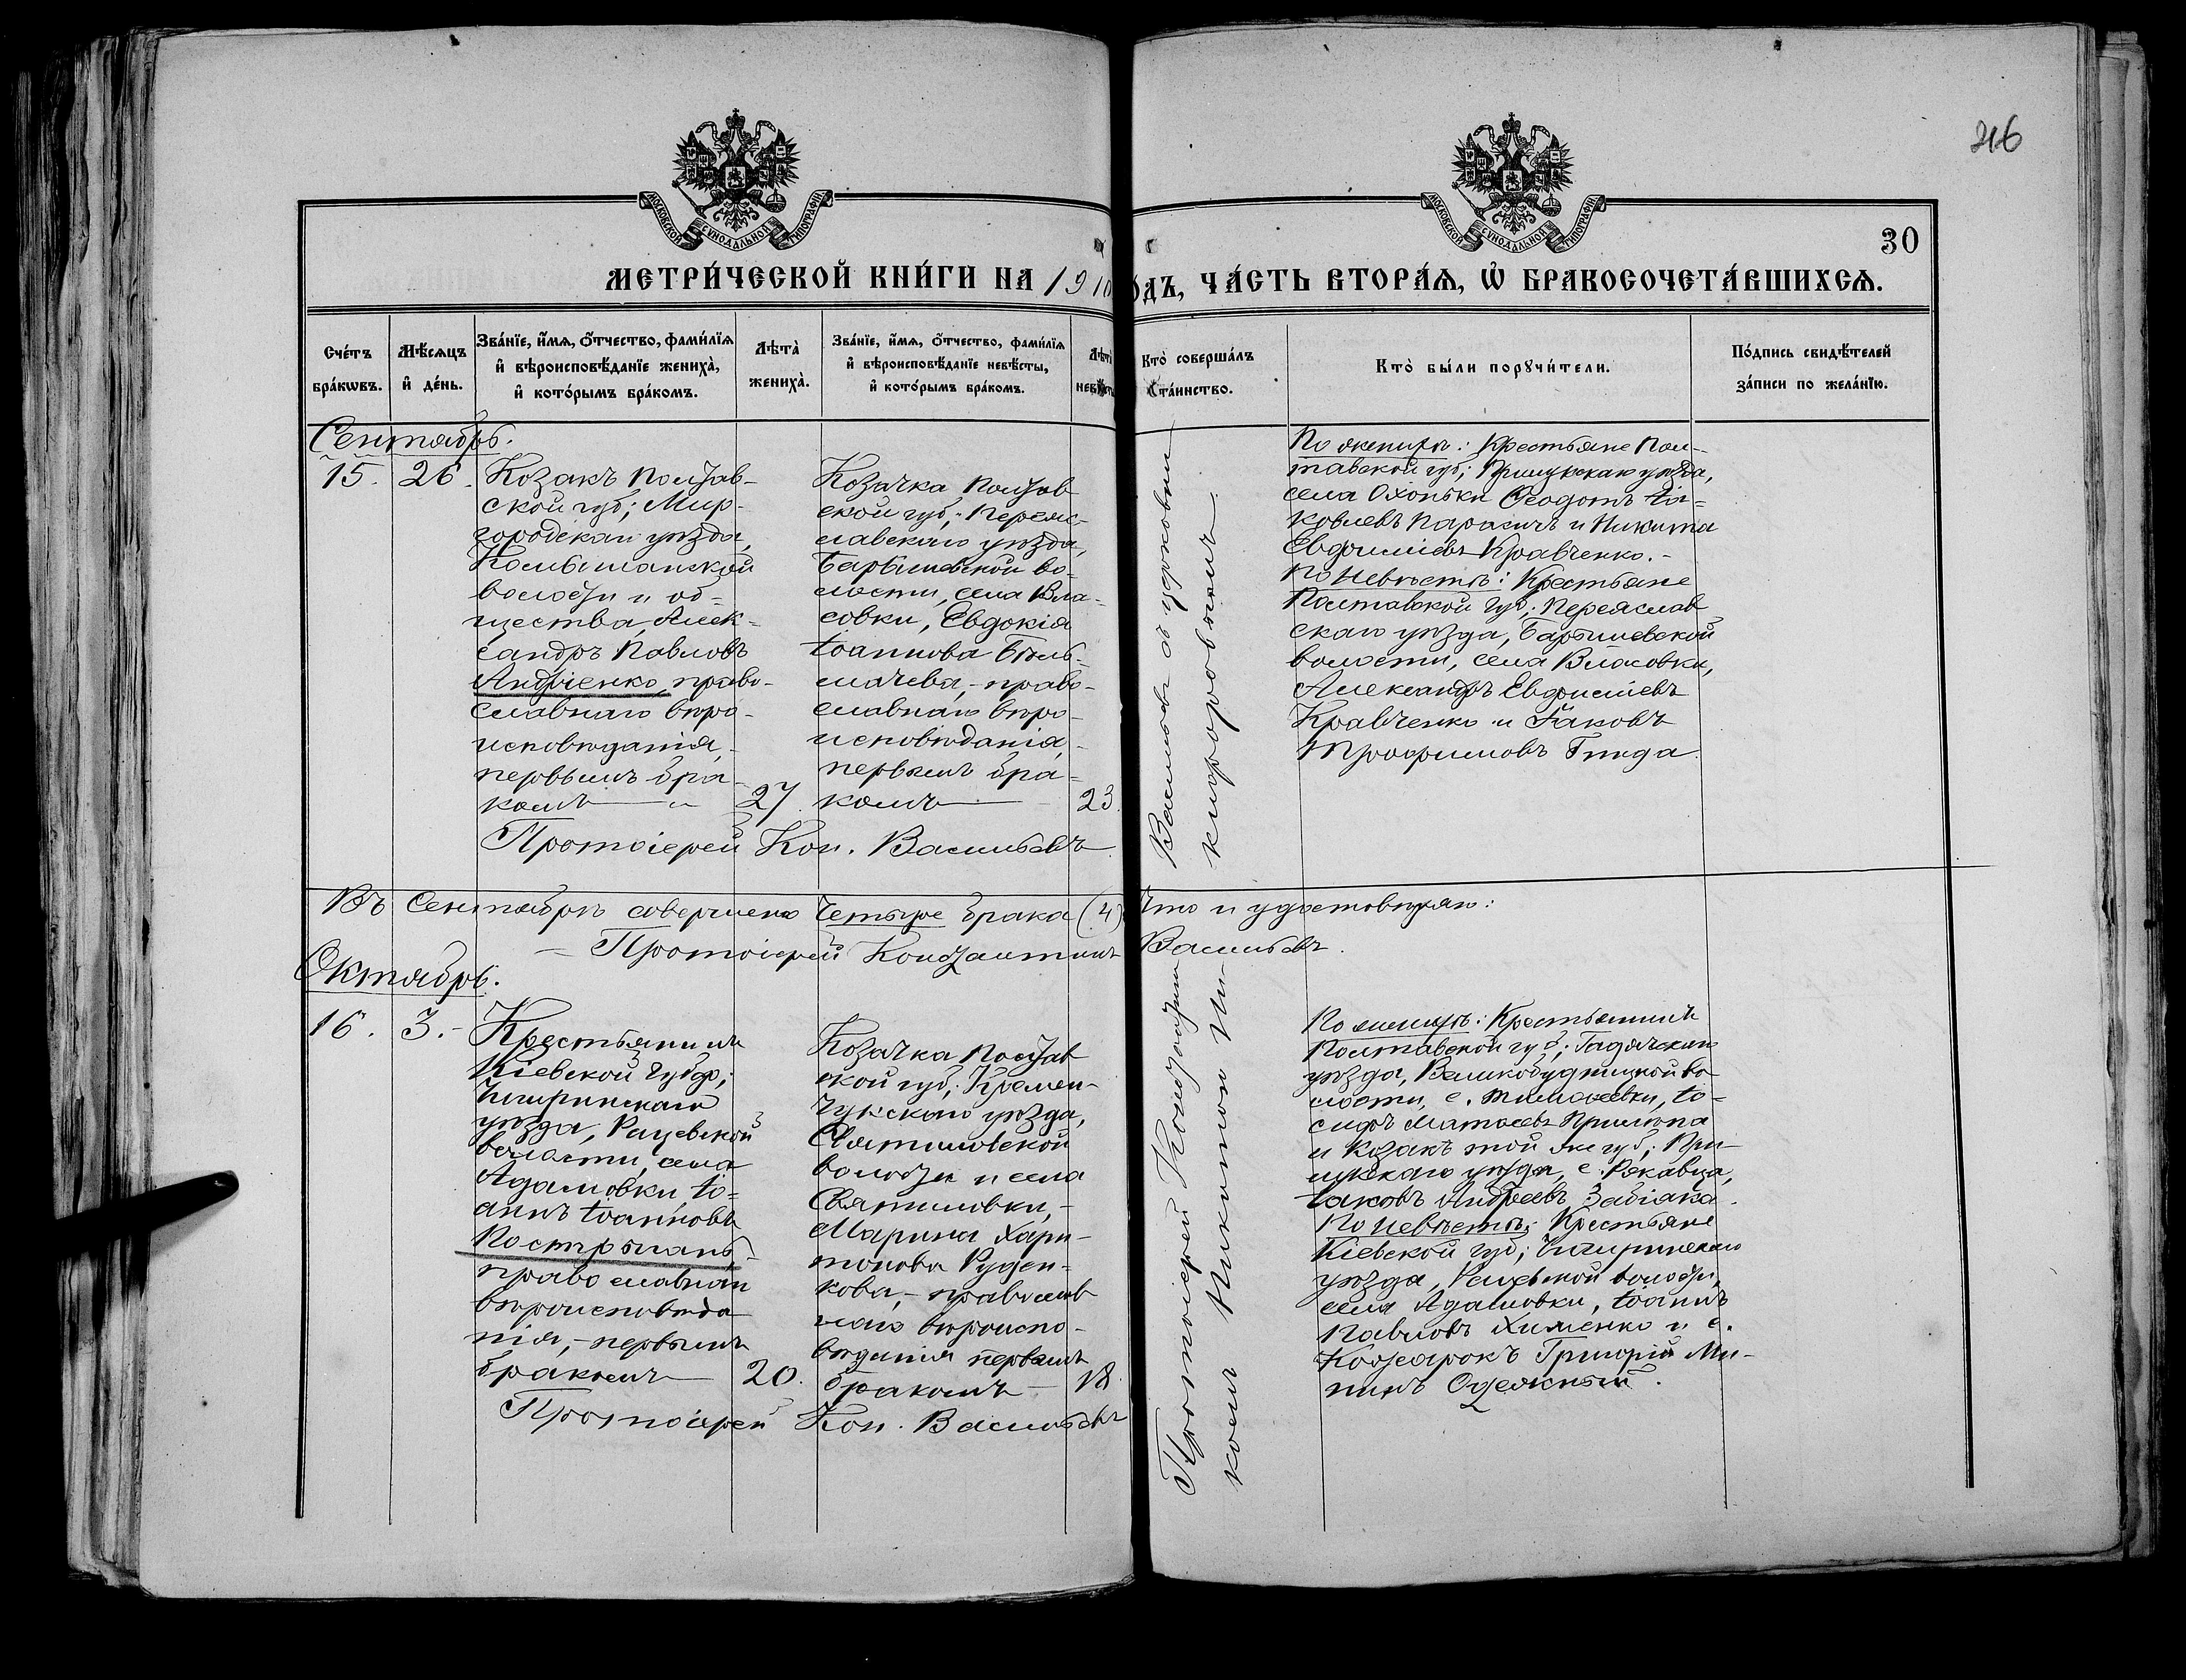 216
30
МОСКОВСКОЙ СУНОДАЛЬНОЙ ТИПОГРАФІИ
МОСКОВСКОЙ СУНОДАЛЬНОЙ ТИПОГРАФІИ
МЕТРИ́ЧЕСКОЙ КНИ́ГИ НА 1910
О́ДЪ, ЧА́СТЬ ВТОРА́Ѧ, Ѡ҆ БРАКОСОЧЕТА́ВШИХСѦ.
Сче́тъ
бра́кѡвъ.
Мѣ́сѧцъ
и҆ де́нь.
Зва́нїе, и҆́мѧ, ѻ҆́тчество, фами́лїѧ
и҆ вѣроисповѣ́данїе жениха̀,
и҆ кото́рымъ бра́комъ.
Лѣта̀
жениха̀.
Зва́нїе, и҆́мѧ, ѻ҆́тчество, фами́лїѧ
и҆ вѣроисповѣ́данїе невѣ́сты,
и҆ кото́рымъ бра́комъ.
Лѣта̀
невѣ́сты
Кто̀ соверша́лъ
та́инство.
Кто̀ бы́ли порꙋчи́тели.
По́дпись свидѣ́телей
за́писи по жела́нїю.
Сентябрь.
15. 26.
Козакъ Полтав-
ской губ; Мир-
городскаго уѣзда,
Комышанской
волости и об-
щества, Алек-
сандръ Павловъ
Андріенко, право-
славнаго вѣро-
исповѣданія,-
первымъ бра-
комъ 27
Козачка Полтав
ской губ; Переяс-
лавскаго уѣзда,
Барышевской во-
лости, села Вла-
совки, Евдокія
Іоаннова
право-
славнаго вѣро-
исповѣданія,-
первымъ бра-
комъ 23.
Протоіерей Кон. Васильевъ
Васильевъ съ
По женихѣ: Крестьяне Пол-
тавской губ; Прилукскаго уѣзда,
села Охоньки Ѳеодотъ Іа-
ковлевъ и Никита
Евдокимовъ Кравченко.-
По невѣстѣ: Крестьяне
Полтавской губ; Переяслав
скаго уѣзда, Барышевской
волости, села Власовки,
Александръ Евдокимовъ
Кравченко и Іаковъ
Трофимовъ
Въ Сентябрѣ совершено четыре брака (4) Что и удостовѣряю:
Протоіерей Константинъ Васильевъ.
Октябрь.
16. 3.-
Крестьянинъ
Кіевской губер;
Чигиринскаго
уѣзда, Рацевской
волости, села
Адамовки Іо-
аннъ Іоанновъ
православнаго
вѣроисповѣда
нія,- первымъ
бракомъ 20.
Козачка Полтав
ской губ; Кремен-
чугскаго уѣзда,
Святиловской
волости и села
Святиловки,-
Марина Хари-
тонова Руден-
кова,- православ
наго вѣроиспо-
вѣданія первымъ
бракомъ 18.
Протоіерей Кон. Васильевъ
Протоіерей Константинъ
По женихѣ: Крестьянинъ
Полтавской губ; Гадячскаго
уѣзда, Великобудищской во
лости, с. Тимофеевки, Іо-
сифъ Матѳеевъ
и Козакъ той же губ; При-
лукскаго уѣзда, с.
Іаковъ Андреевъ Забіяка.
По невѣстѣ: Крестьяне
Кіевской губ; Чигиринскаго
уѣзда, Рацевской волости,
села Адамовки, Іоаннъ
Павловъ Хименко и с.
Григорій Ми-